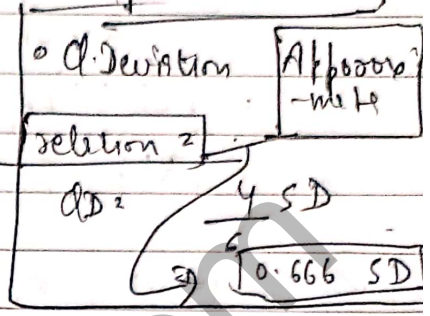 • Q. Deviation
Approxi
-mate
relation =
QD =
4/6 SD
⇒ 0.666 SD